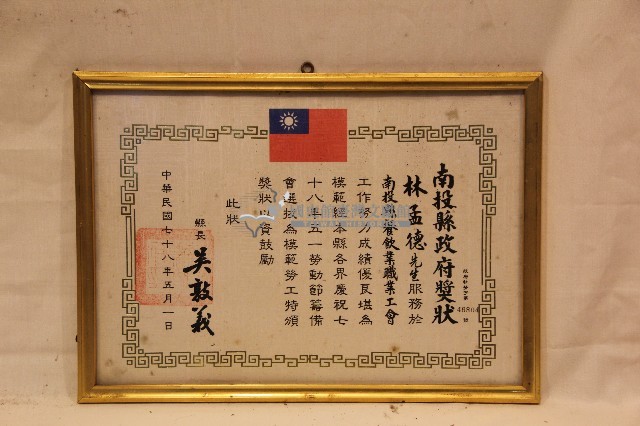 南投縣政府獎狀
林孟德先生服務於
南投縣餐飲業職業工會
工作努力成績優良堪為
模範經本縣各界慶祝七
十八年五一勞動節籌備
會選拔為模範勞工特頒
獎狀以資鼓勵
此狀
縣長 吳敦義
中華民國七十八年五月一日